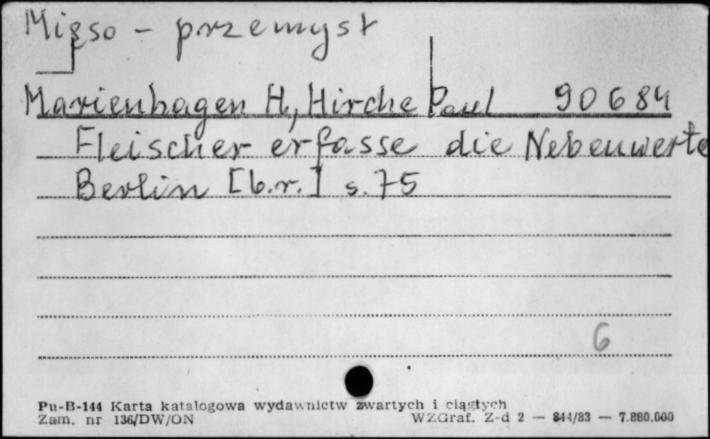 Mięso - przemysł
Marienhagen H, Hirche Paul 90684
Fleischer erfasse die Nebenwerte
Berlin [b.r.] s. 75
6
Pu-B-144 Karta katalogowa wydawnictw zwartych i ciągłych
Zam. nr 136/DW/ON WZGraf. Z-d 2 — 844/83 — 7.880.000